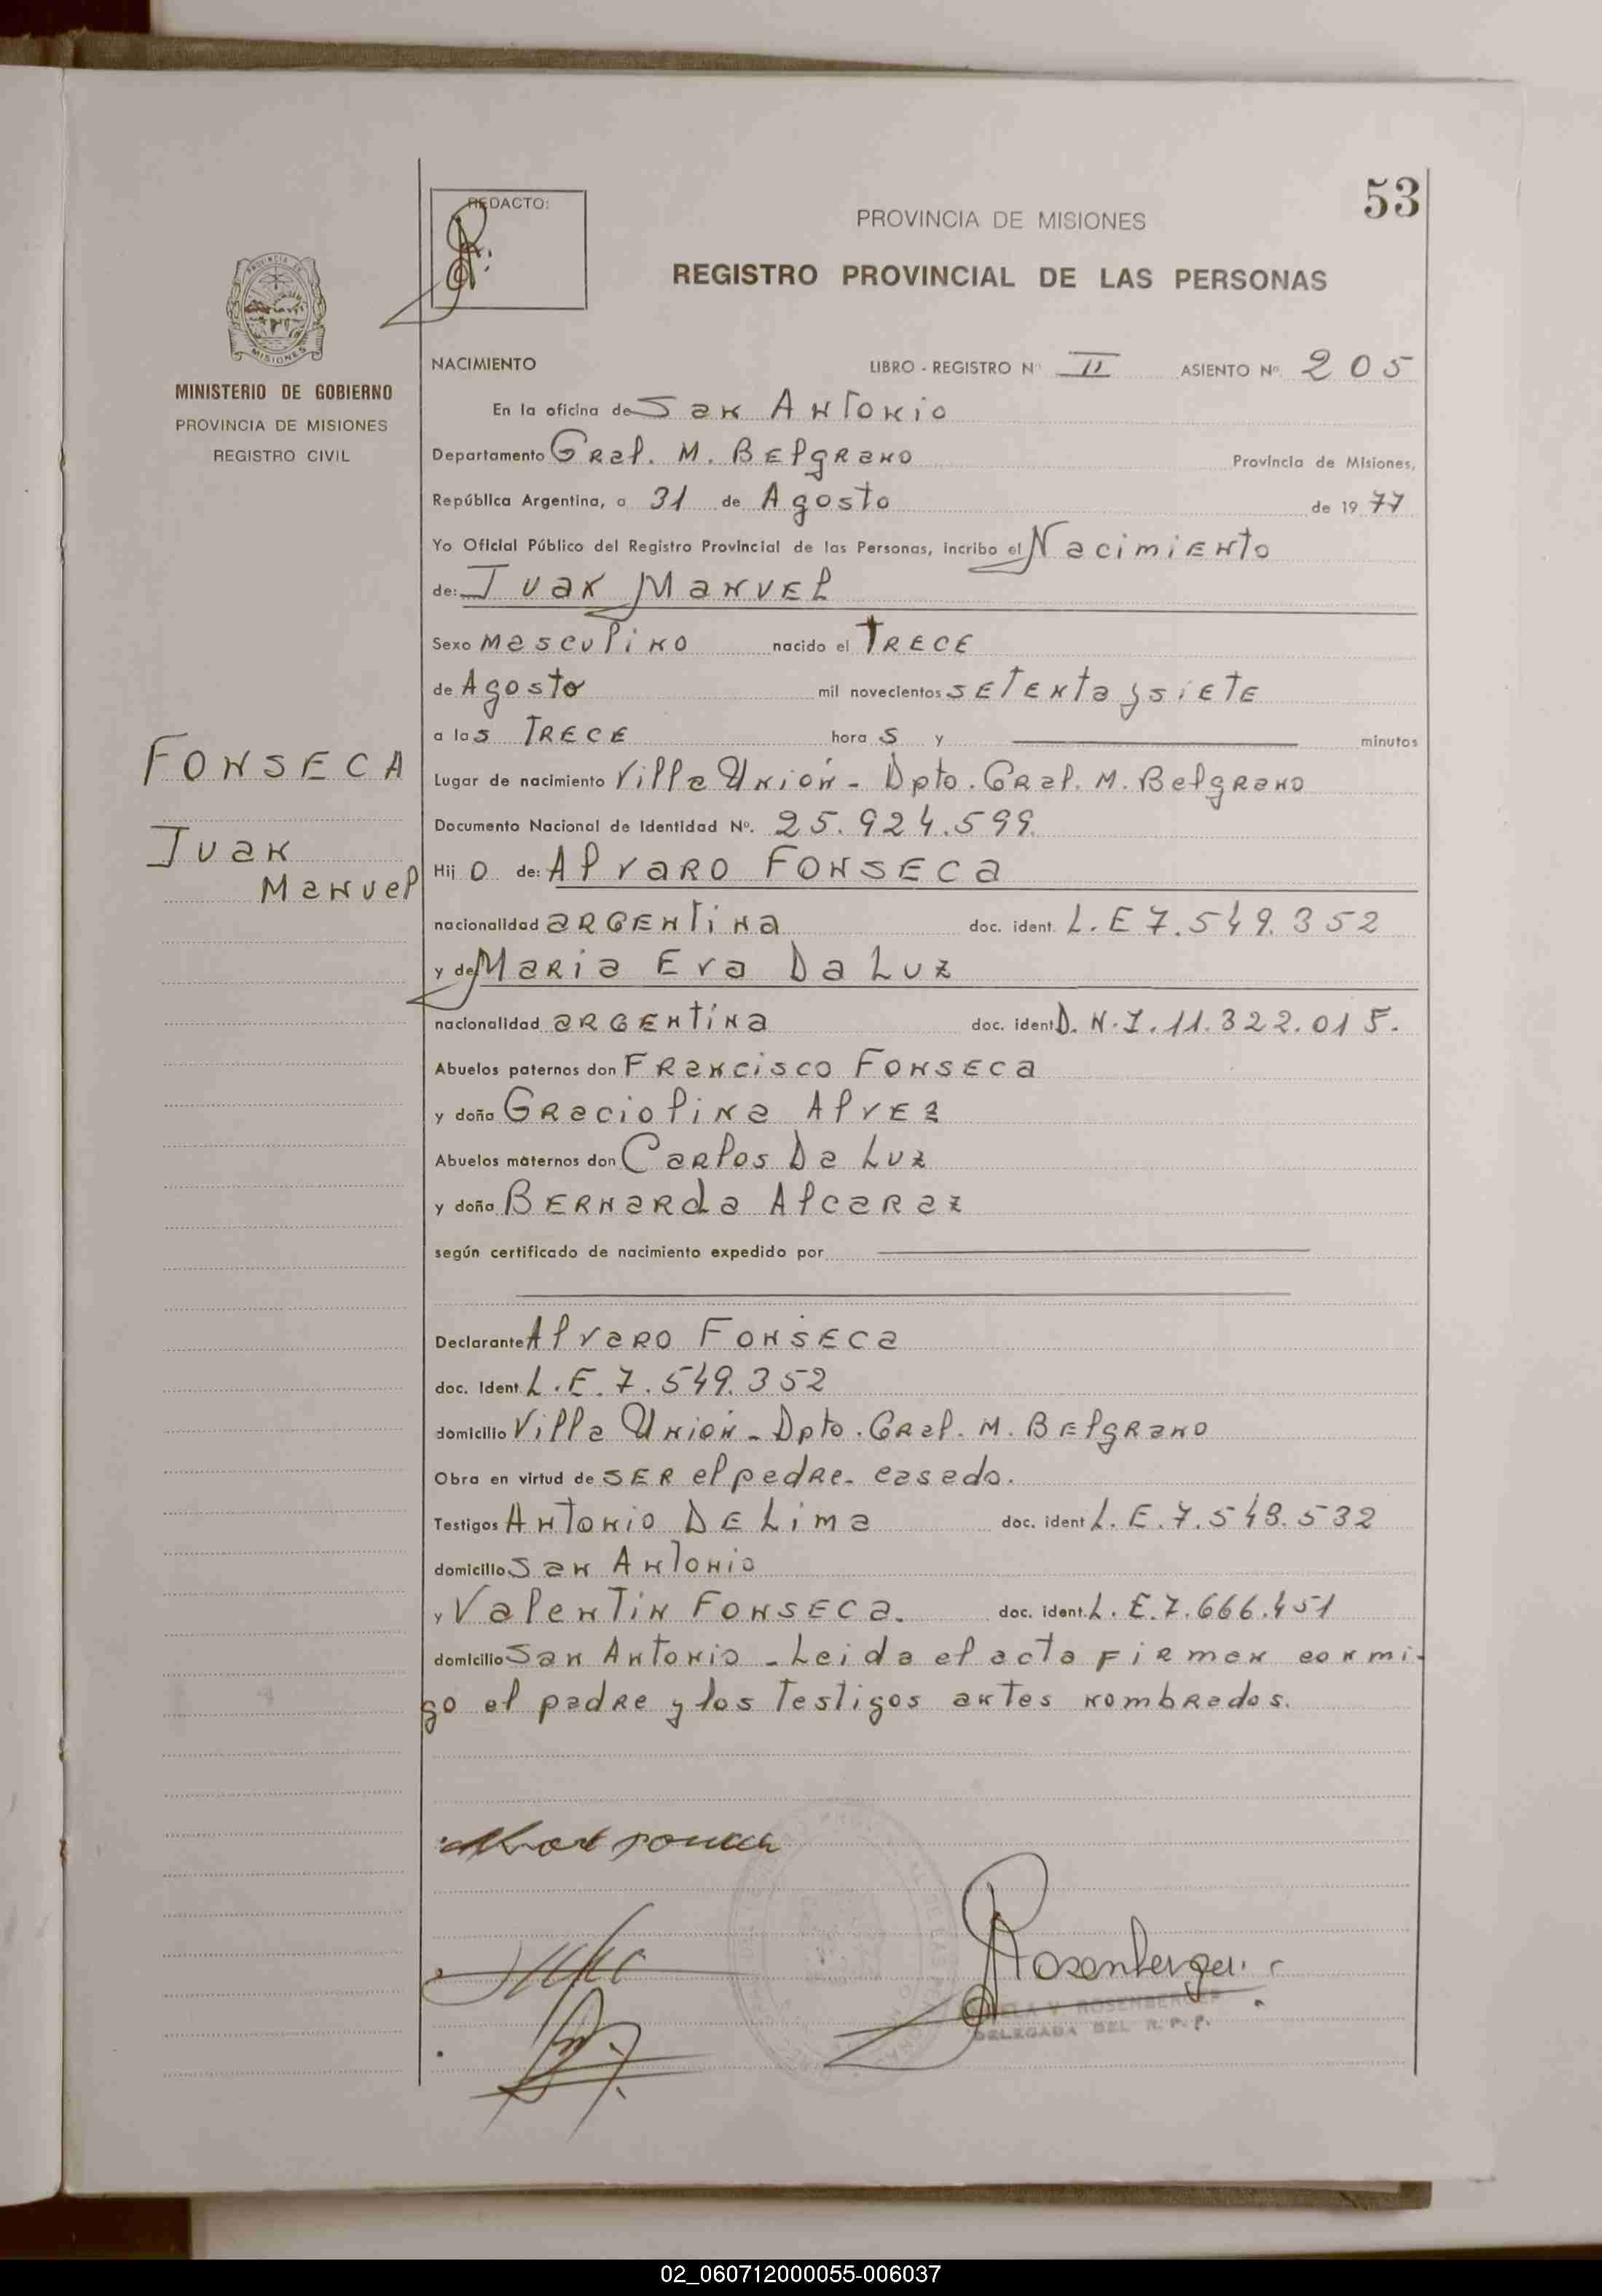 53
REDACTO:
PROVINCIA DE MISIONES
REGISTRO PROVINCIAL DE LAS PERSONAS
MISIONES
MINISTERIO DE GOBIERNO
PROVINCIA DE MISIONES
REGISTRO CIVIL
NACIMIENTO LIBRO - REGISTRO Nº II ASIENTO Nº 205
En la oficina de San Antonio
Departamento Gral. M. Belgrano Provincia de Misiones,
República Argentina, a 31 de Agosto de 1977
Yo Oficial Público del Registro Provincial de las Personas, incribo el Nacimiento
de: Juan Manuel
Sexo masculino nacido el Trece
de Agosto mil novecientos setenta y siete
a las Trece horas y minutos
FONSECA
Juan
Manuel
Lugar de nacimiento Villa Unión - Dpto. Gral. M. Belgrano
Documento Nacional de Identidad Nº. 25.924.599.
Hijo de: Alvaro FONSECA
nacionalidad argentina doc. ident. L.E 7.549.352
y de Maria Eva Da Luz
nacionalidad argentina doc. ident D.N.I. 11.322.015.
Abuelos paternos don Francisco Fonseca
y doña Graciolina Alvez
Abuelos maternos don Carlos Da Luz
y doña Bernarda Alcaraz
según certificado de nacimiento expedido por
Declarante Alvaro Fonseca
doc. Ident. L.E. 7.549.352
domicilio Villa Unión - Dpto. Gral. M. Belgrano
Obra en virtud de ser el padre - casado.
Testigos Antonio De Lima doc. ident L.E. 7.548.532
domicilio San Antonio
y Valentin Fonseca. doc. ident. L.E. 7.666.451
domicilio San Antonio - Leida el acta firman conmi-
go el padre y los Testigos antes nombrados.
Rosenberger
ROSENBERGER
DELEGADA DEL R. P. P.
02_060712000055-006037